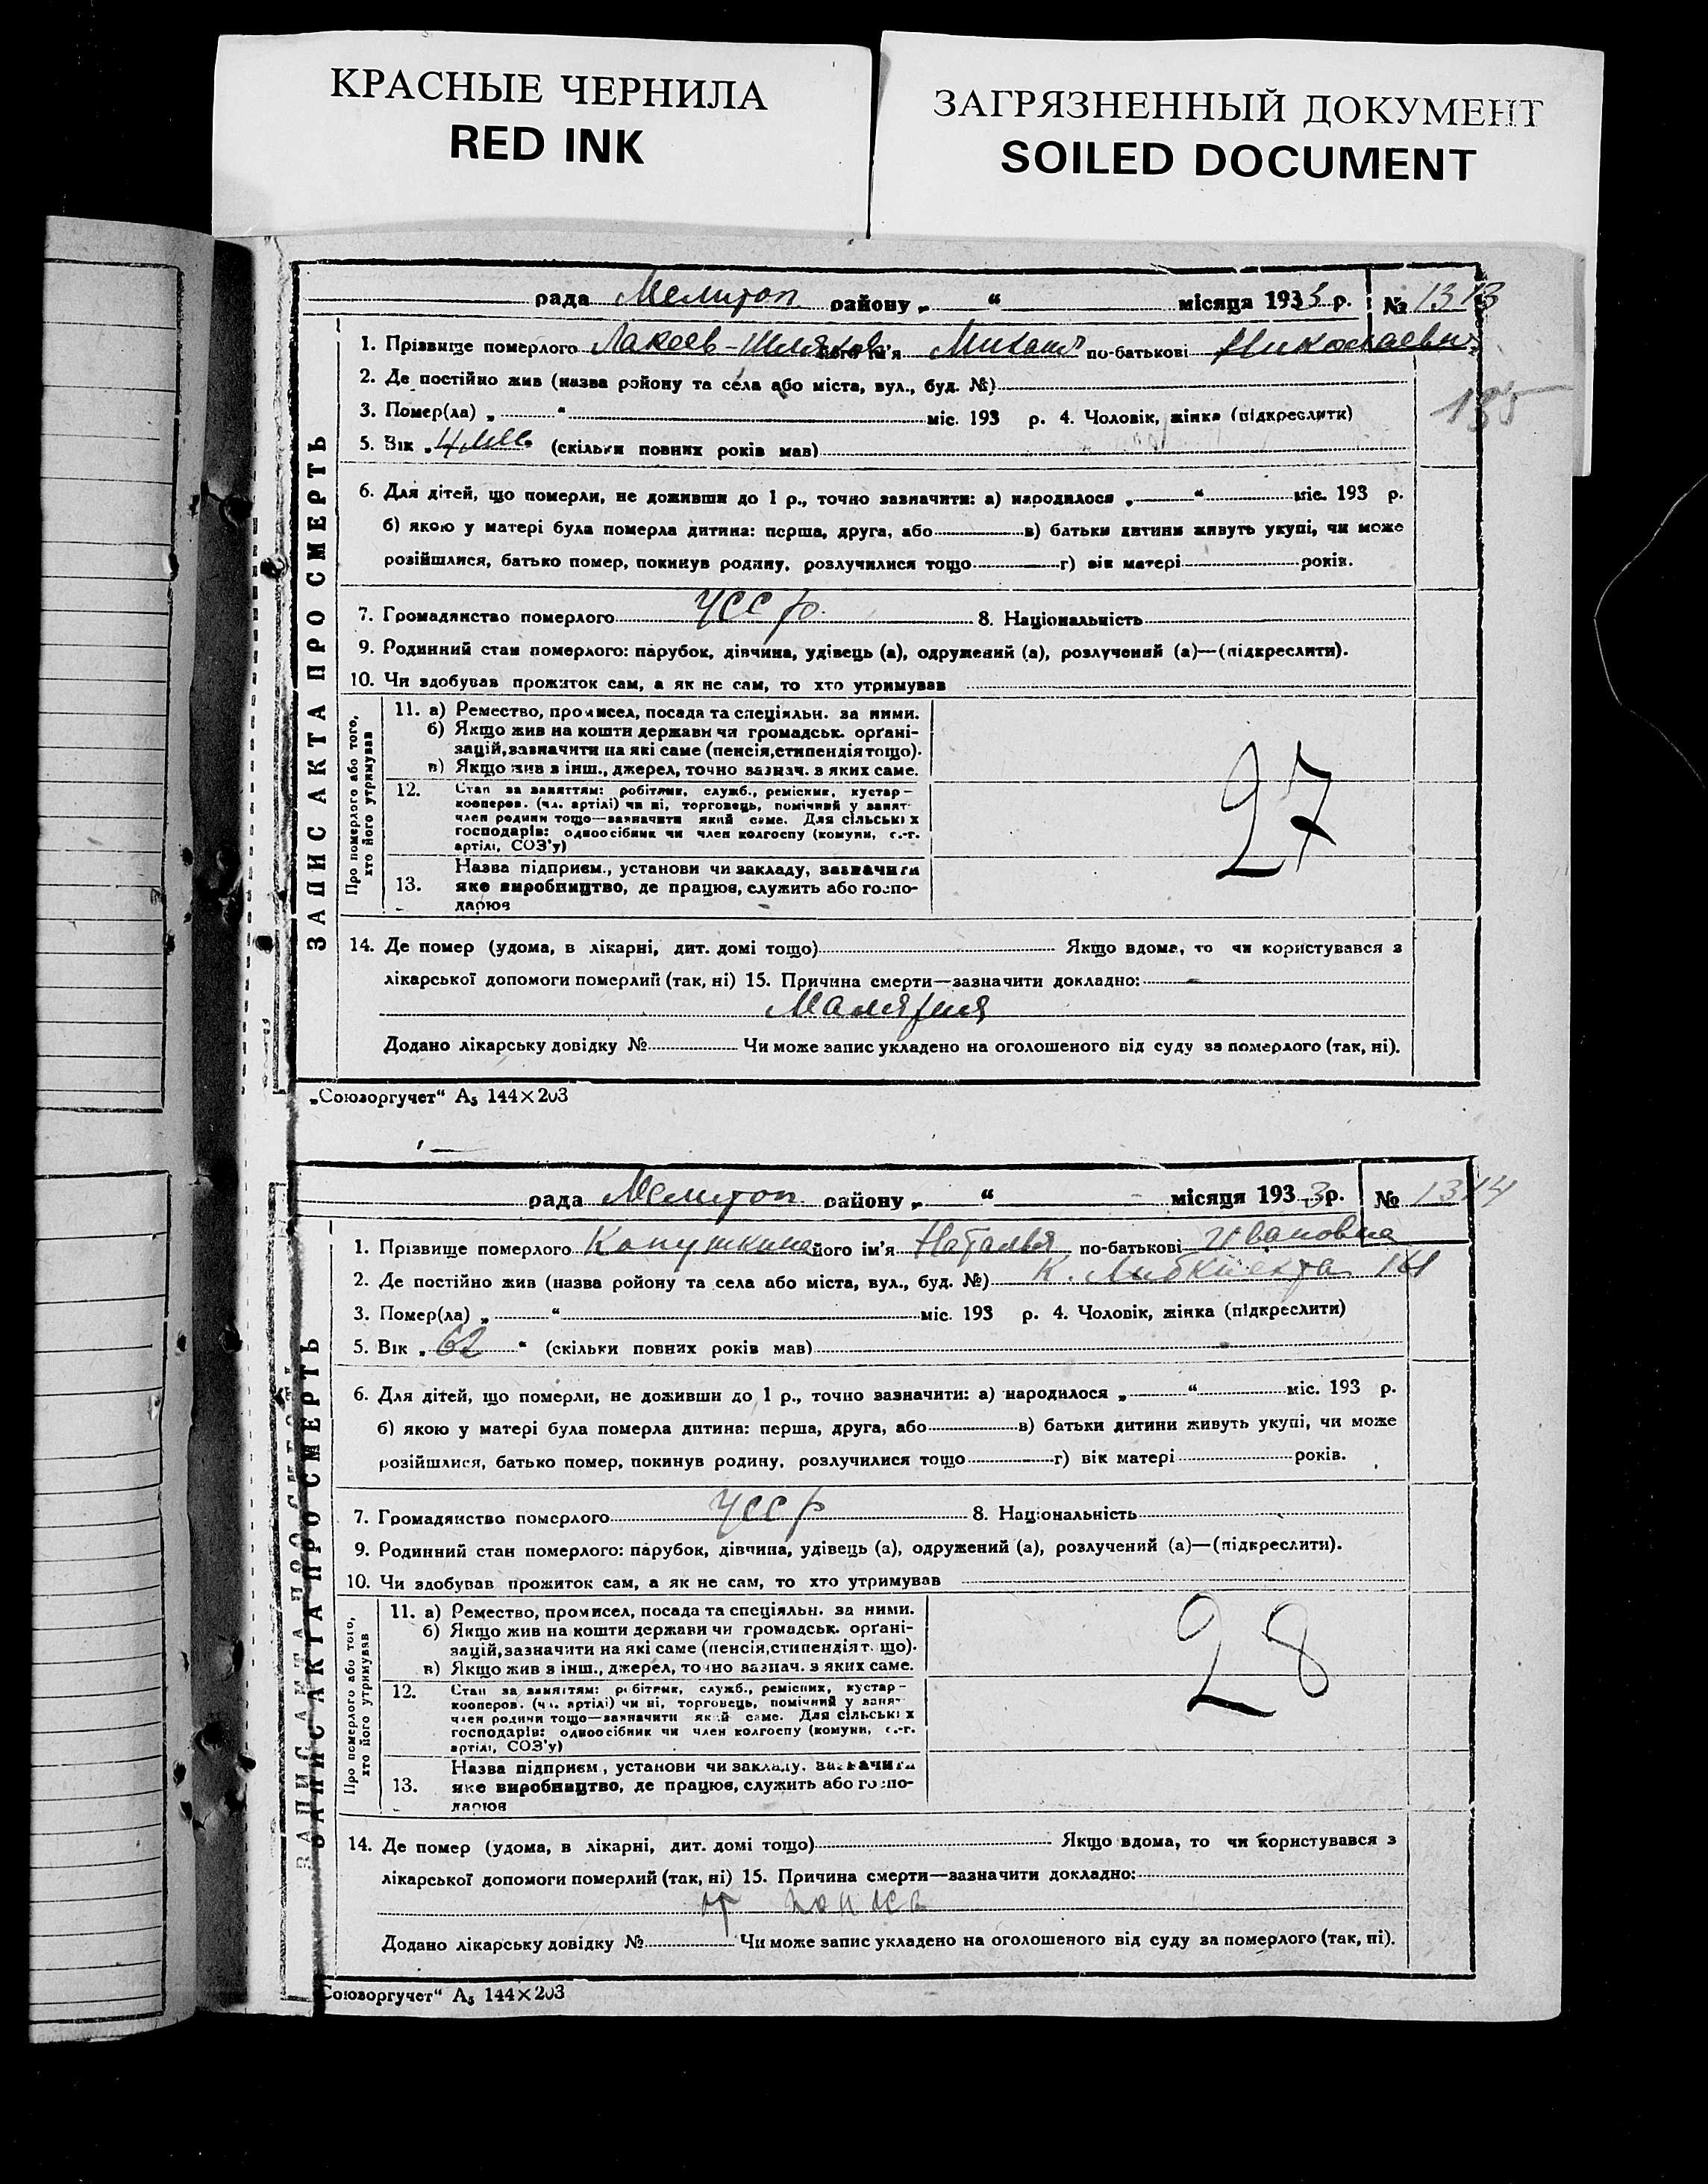 КРАСНЫЕ ЧЕРНИЛА
RED INK
ЗАГРЯЗНЕННЫЙ ДОКУМЕНТ
SOILED DOCUMENT
ЗАПИС АКТА ПРО СМЕРТЬ
рада Мелитоп району „ “ місяця 1933 р. № 1313
1. Прізвище померлого Лакеев- його ім'я Михаил по-батькові Николаевич
135
2. Де постійно жив (назва ройону та села або міста, вул., буд. №)
3. Помер(ла) „ “ міс. 193 р. 4. Чоловік, жінка (підкреслити)
5. Вік „ 4 мес. (скільки повних років мав)
6. Для дітей, що померли, не доживши до 1 р., точно зазначити: а) народилося „ “ міс. 193 р.
б) якою у матері була померла дитина: перша, друга, або в) батьки дитини живуть укупі, чи може
розійшлися, батько помер, покинув родину, розлучилися тощо г) вік матері років.
7. Громадянство померлого УССР 8. Національність
9. Родинний стан померлого: парубок, дівчина, удівець (а), одружений (а), розлучений (а)—(підкреслити).
10. Чи здобував прожиток сам, а як не сам, то хто утримував
Про померлого або того, хто його утримував
11. а) Ремество, промисел, посада та спеціяльн. за ними.
б) Якщо жив на кошти держави чи громадськ. орґані-
зацій, зазначити на які саме (пенсія, стипендія тощо).
в) Якщо жив з інш., джерел, точно зазнач. з яких саме.
27
12. Стан за заняттям: робітник, служб., ремісник, кустар-
кооперов. (чл. артілі) чи ні, торговець, помічний у занят
член родини тощо—зазначити який саме. Для сільських
господарів: одноосібник чи член колгоспу (комуни, с.-г.
артілі, СОЗ'у)
Назва підприєм., установи чи закладу, зазначити
13. яке виробництво, де працює, служить або госпо-
дарює
14. Де помер (удома, в лікарні, дит. домі тощо) Якщо вдома, то чи користувався з
лікарської допомоги померлий (так, ні) 15. Причина смерти—зазначити докладно:
Малярия
Додано лікарську довідку № Чи може запис укладено на оголошеного від суду за померлого (так, ні).
„Союзоргучет“ А₅ 144×203
ЗАПИС АКТА ПРО СМЕРТЬ
рада Мелитоп району „ “ місяця 1933 р. № 1314
1. Прізвище померлого Капушкина його ім'я Наталья по-батькові Ивановна
2. Де постійно жив (назва ройону та села або міста, вул., буд. №) К. Либкнехта
3. Помер(ла) „ “ міс. 193 р. 4. Чоловік, жінка (підкреслити)
5. Вік „ 62 “ (скільки повних років мав)
6. Для дітей, що померли, не доживши до 1 р., точно зазначити: а) народилося „ “ міс. 193 р.
б) якою у матері була померла дитина: перша, друга, або в) батьки дитини живуть укупі, чи може
розійшлися, батько помер, покинув родину, розлучилися тощо г) вік матері років.
7. Громадянство померлого УССР 8. Національність
9. Родинний стан померлого: парубок, дівчина, удівець (а), одружений (а), розлучений (а)—(підкреслити).
10. Чи здобував прожиток сам, а як не сам, то хто утримував
Про померлого або того, хто його утримував
11. а) Ремество, промисел, посада та спеціяльн. за ними.
б) Якщо жив на кошти держави чи громадськ. орґані-
зацій, зазначити на які саме (пенсія, стипендія т. що).
в) Якщо жив з інш., джерел, точно зазнач. з яких саме.
28
12. Стан за заняттям: робітник, служб., ремісник, кустар-
кооперов. (чл. артілі) чи ні, торговець, помічний у занят-
член родини тощо—зазначити який саме. Для сільських
господарів: одноосібник чи член колгоспу (комуни, с.-г.
артілі, СОЗ'у)
Назва підприєм., установи чи закладу, зазначити
13. яке виробництво, де працює, служить або госпо-
дарює
14. Де помер (удома, в лікарні, дит. домі тощо) Якщо вдома, то чи користувався з
лікарської допомоги померлий (так, ні) 15. Причина смерти—зазначити докладно:
от поноса
Додано лікарську довідку № Чи може запис укладено на оголошеного від суду за померлого (так, ні).
Союзоргучет“ А₅ 144×203